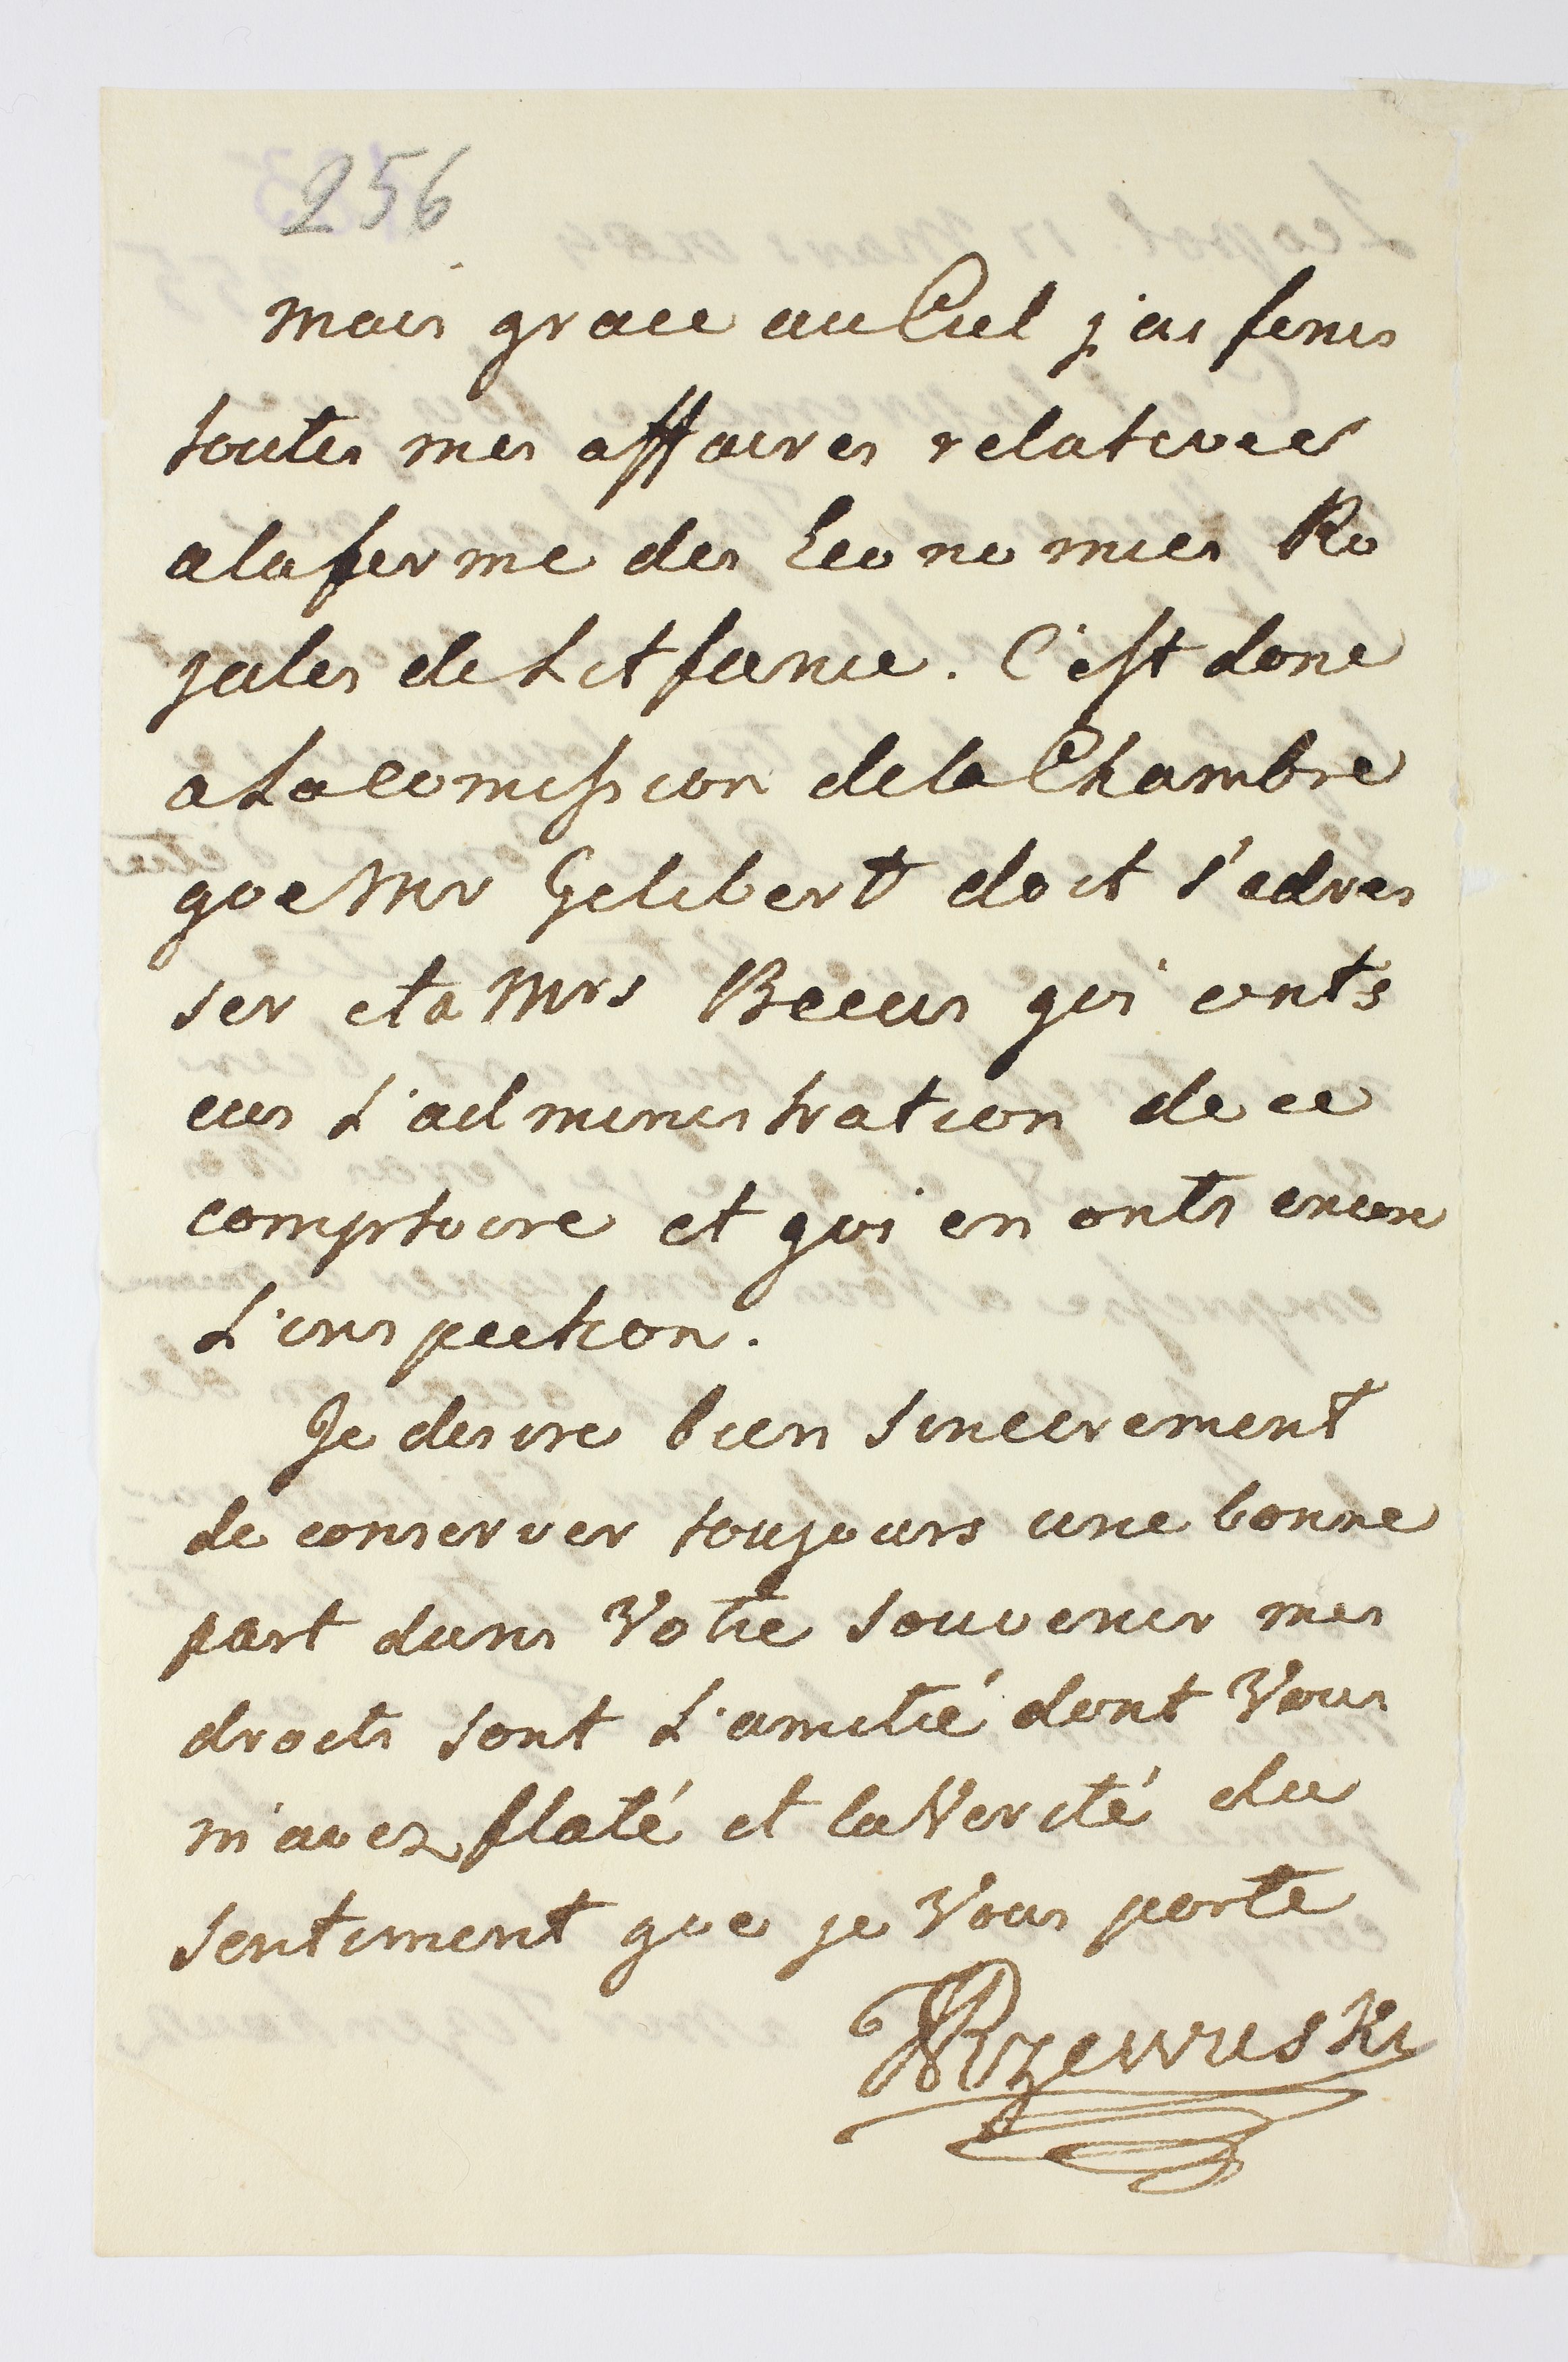 256
mais grace au Ciel j'ai finis
toutes mes affaires relativees
a la ferme des Economies Ro
jales de Litfanie. C'est donc
a La Comission de la Chambre
que Mr Gilibert doit s'adres
ser et a Mrs Beccus qui onts
eus L'administration de ce
comptoire et qui en onts encore
L'inspection.
Je desire bien sincerement
de conserver toujours une bonne
part dans Votre souvenir mes
droits sont L'amitié dont Vous
m'avez flaté et la Verité du
sentiment que je Vous porte
Rzewuski